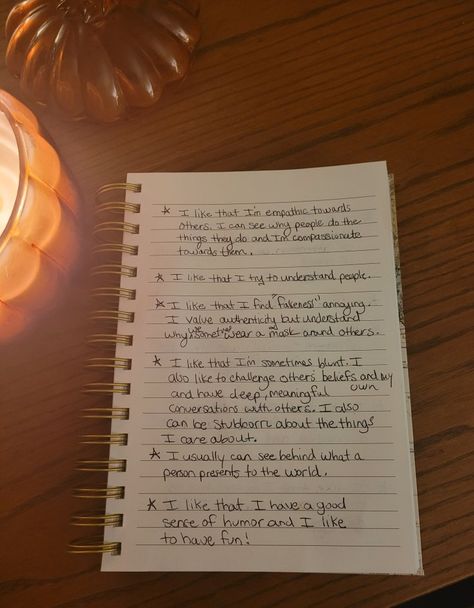 * I like that I'm empathic towards
others. I can see why people do the
things they do and I'm compassionate
towards them.
* I like that I try to understand people.
* I like that I find "fakeness" annoying.
I value authenticity but understand
why we sometimes wear a mask around others.
* I like that I'm sometimes blunt. I
also like to challenge others' beliefs and my own
and have deep, meaningful
conversations with others. I also
can be stubborn about the things
I care about.
* I usually can see behind what a
person presents to the world.
* I like that I have a good
sense of humor and I like
to have fun!